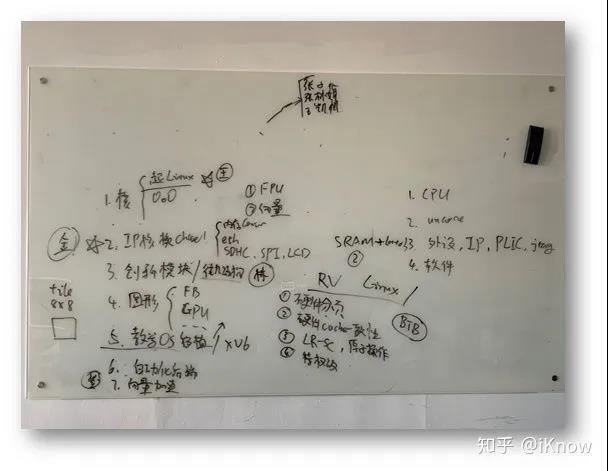 张
张林娟
王凯帆
1. 核 { 起Linux ☆ 王
O.O
① FPU
② 向量
金 ☆ 2. IP核 换chisel {
eth
SDHC, SPI, LCD
3. 创新模块/
4. 图形 { FB
GPU
tile
8x8
5. 教学OS xv6
6. 自动化后端
7. 向量加速
1. CPU
2. uncore
SRAM
②
3. 外设, IP, PLIC, jtag
4. 软件
RV Linux
①
② 硬件cache一致性
③ LR-SC, 原子操作
④ 特权级
BTB
知乎 @iKnow